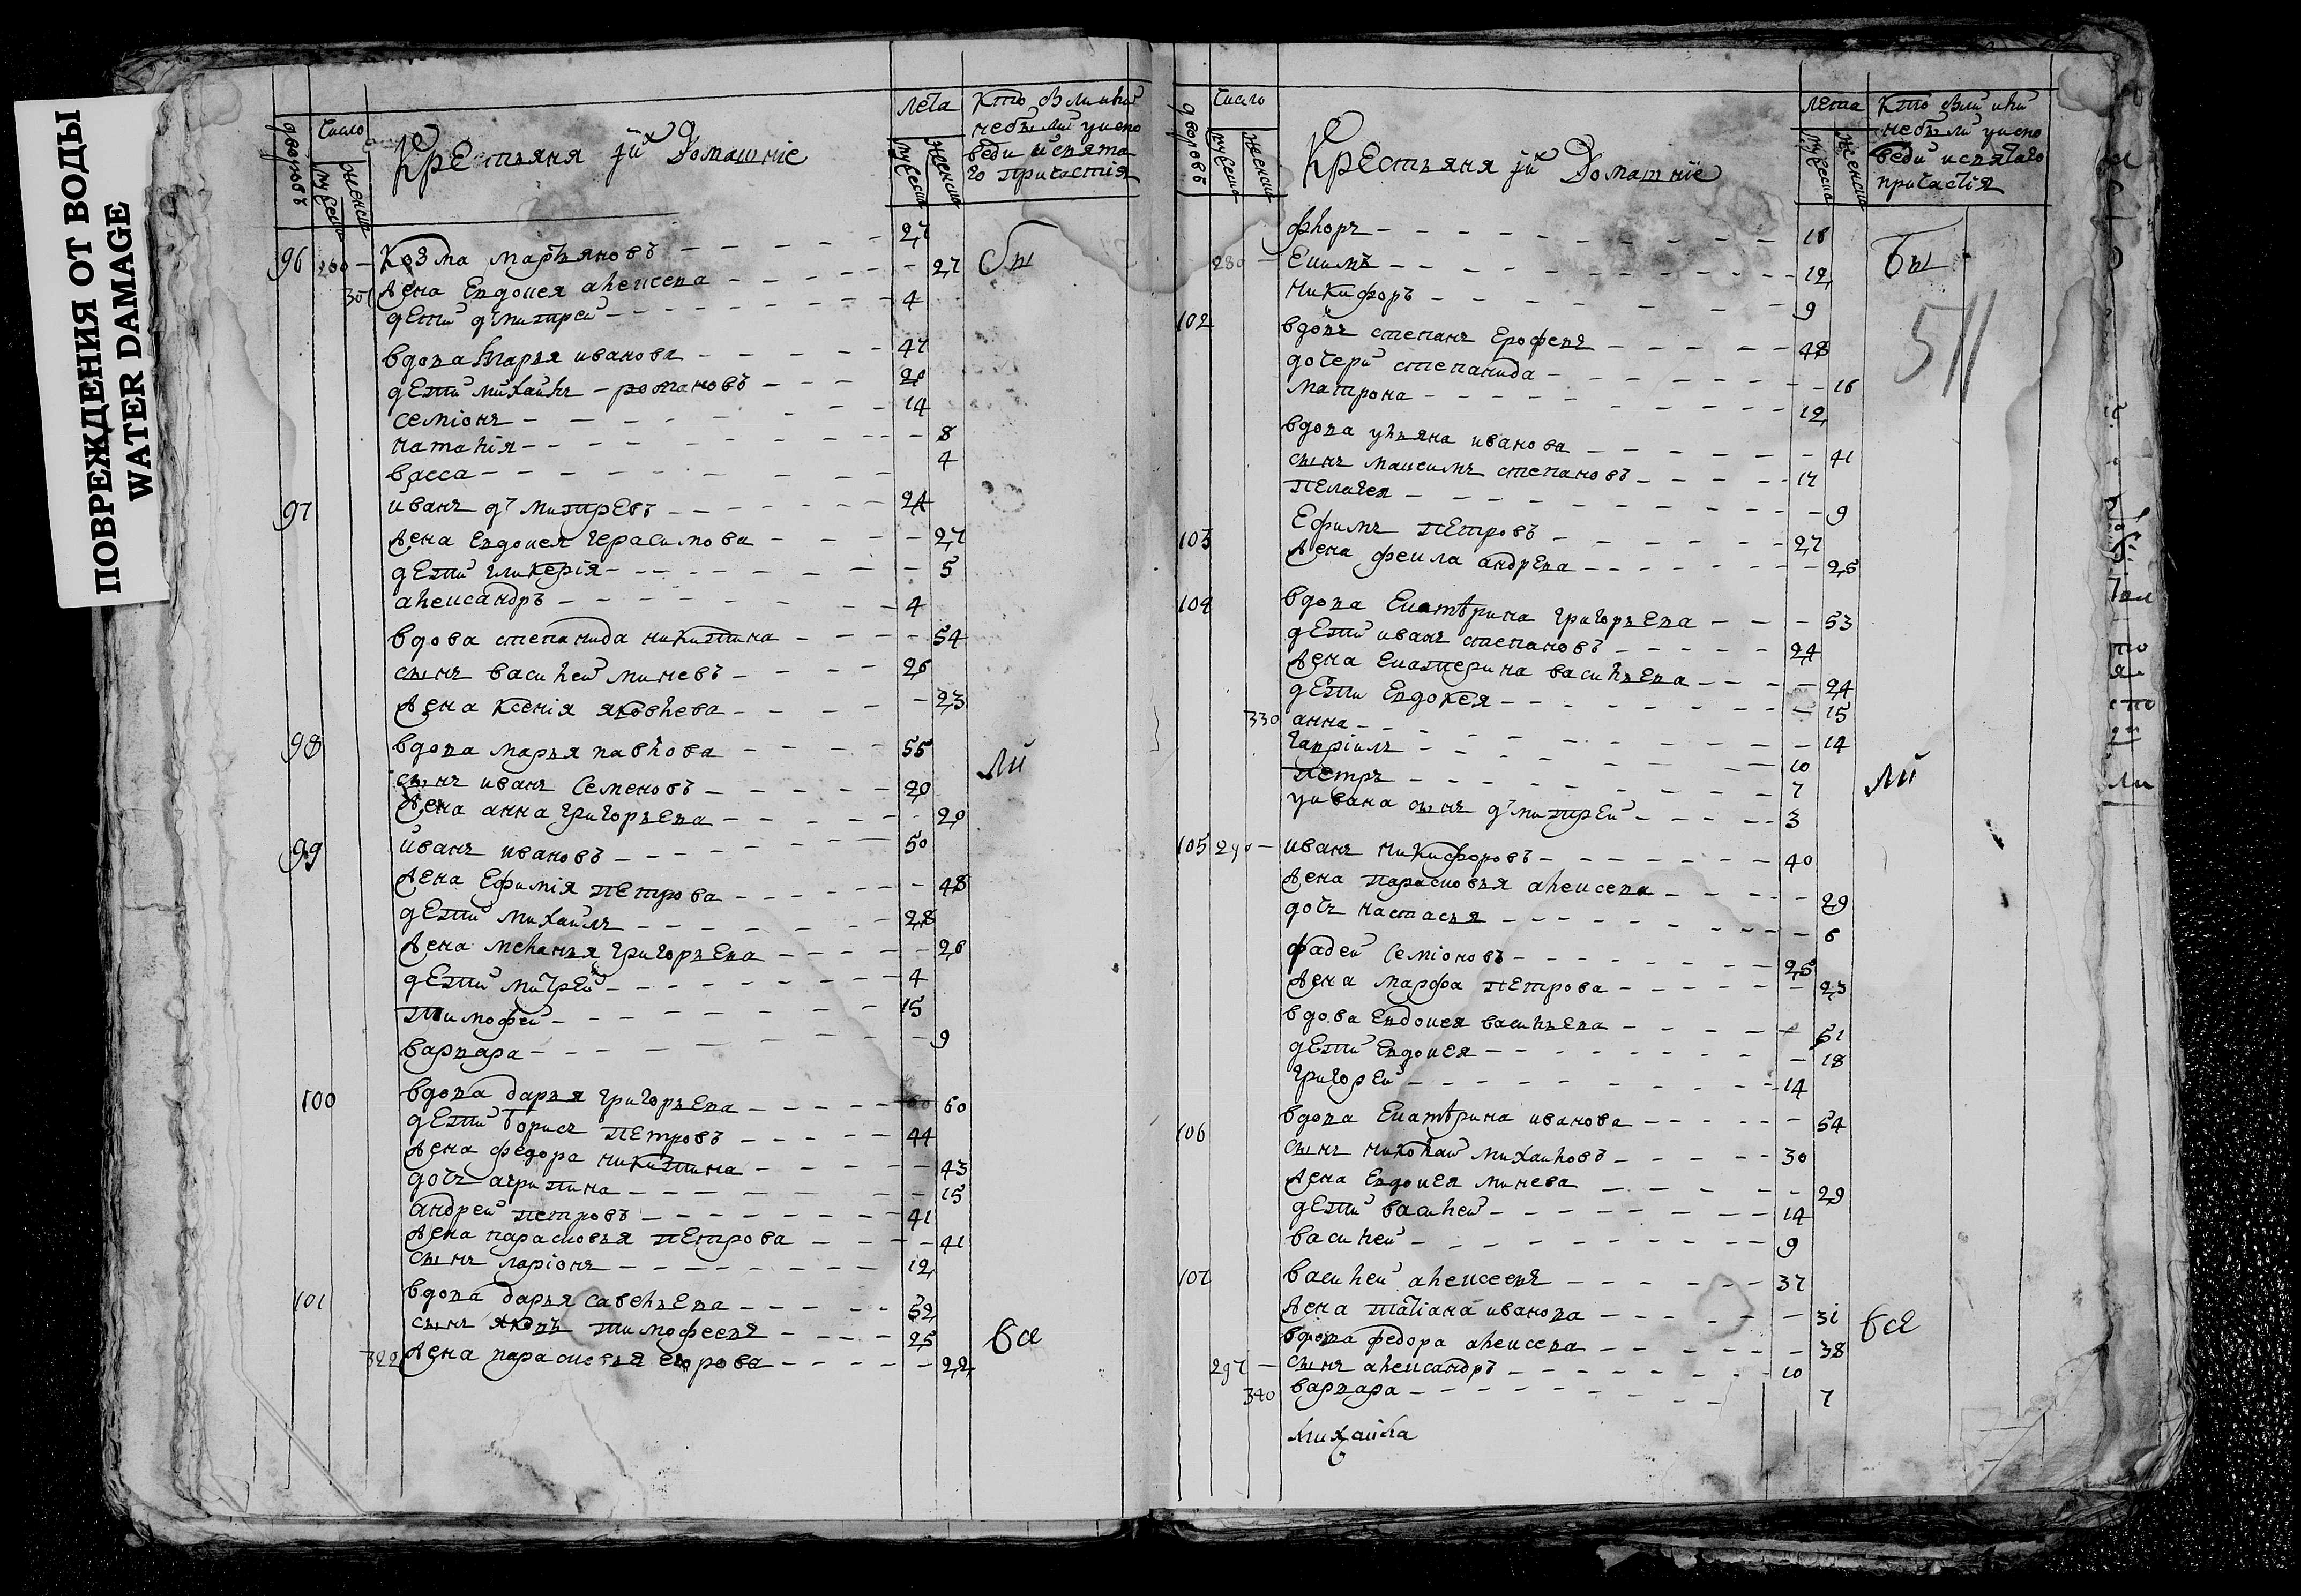 ПОВРЕЖДЕНИЯ ОТ ВОДЫ
WATER DAMAGE
дворовъ
Число
мужеска
женска
Крестьяня ји Домашніе
Лета
мужеска
женска
Кто были или
небыли уиспо
веди и свята
го причастія
96 260 Козма Мартьяновъ 27 Бы
301 Жена Евдокея алексева 27
дети дмитрей 4
вдова Марья иванова 47
дети михайлъ романовъ 20
семіонъ 14
наталія 8
васса 4
97 иванъ дмитревъ 24
Жена Евдокея герасимова 27
дети гликерія 5
александръ 4
вдова степанида никитина 54
сынъ василей миневъ 26
Жена ксенія яковлева 23
98 вдова марья павлова 55
ли
сынъ иванъ семеновъ 20
Жена анна григорьева 20
99 иванъ ивановъ 50
Жена Ефимія петрова 48
дети михаилъ 28
Жена меланья григорьева 26
дети митрей 4
тимофей 15
варвара 9
100 вдова дарья григорьева 60 60
дети борисъ петровъ 44
Жена федора никитина 43
дочь агрипина 15
андрей петровъ 41
Жена парасковья петрова 41
сынъ ларіонъ 12
101 вдова дарья савельева 52
сынъ яковъ тимофеевъ 25 вся
322 Жена парасковья егорова 22
дворовъ
Число
мужеска
женска
Крестьяня ји Домашніе
лета
мужеска
женска
Кто были или
небыли уиспо
веди исвятаго
причастія
флоръ 16
280 Екимъ 12 Бы
никифоръ 9
511
102 вдовъ степанъ Ерофевъ 48
дочери степанида 16
матрона 12
вдова ульяна иванова 41
сынъ максимъ степановъ 17
пелагея 9
103 Ефимъ петровъ 27
Жена фекла андрева 25
104 вдова Екатѣрина григорьева 53
дети иванъ степановъ 24
Жена Екатерина васильева 24
дети Евдокея 15
330 анна 14
гавріилъ 10
петръ 7
ли
уивана сынъ дмитрей 3
105 290 иванъ никифоровъ 40
Жена парасковья алексева 29
дочь настасья 6
фадей семіоновъ 25
Жена марфа петрова 23
вдова Евдокея васильева 51
дети Евдокея 18
григорей 14
106 вдова Екатѣрина иванова 54
сынъ николай михаиловъ 30
Жена Евдокея минева 29
дети василей 14
василей 9
107 василей алексеевъ 37
Жена татіана иванова 31 вся
вдова федора алексева 38
297 сынъ александръ 10
340 варвара 7
михаила